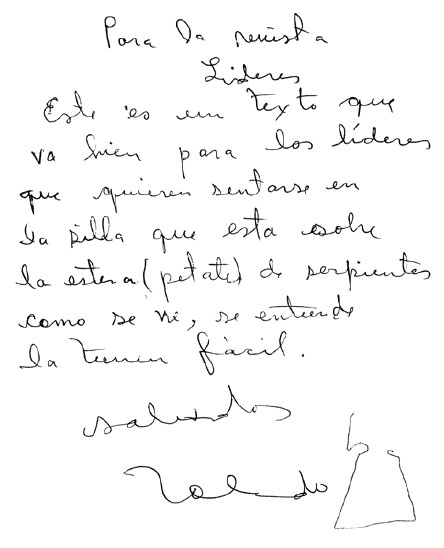 Para la revista
Lideres
Este es un texto que
va bien para los líderes
que quieren sentarse en
la silla que esta sobre
la estera (petate) de serpientes
como se ve, se entiende
la tienen fácil.
saludos
Toledo